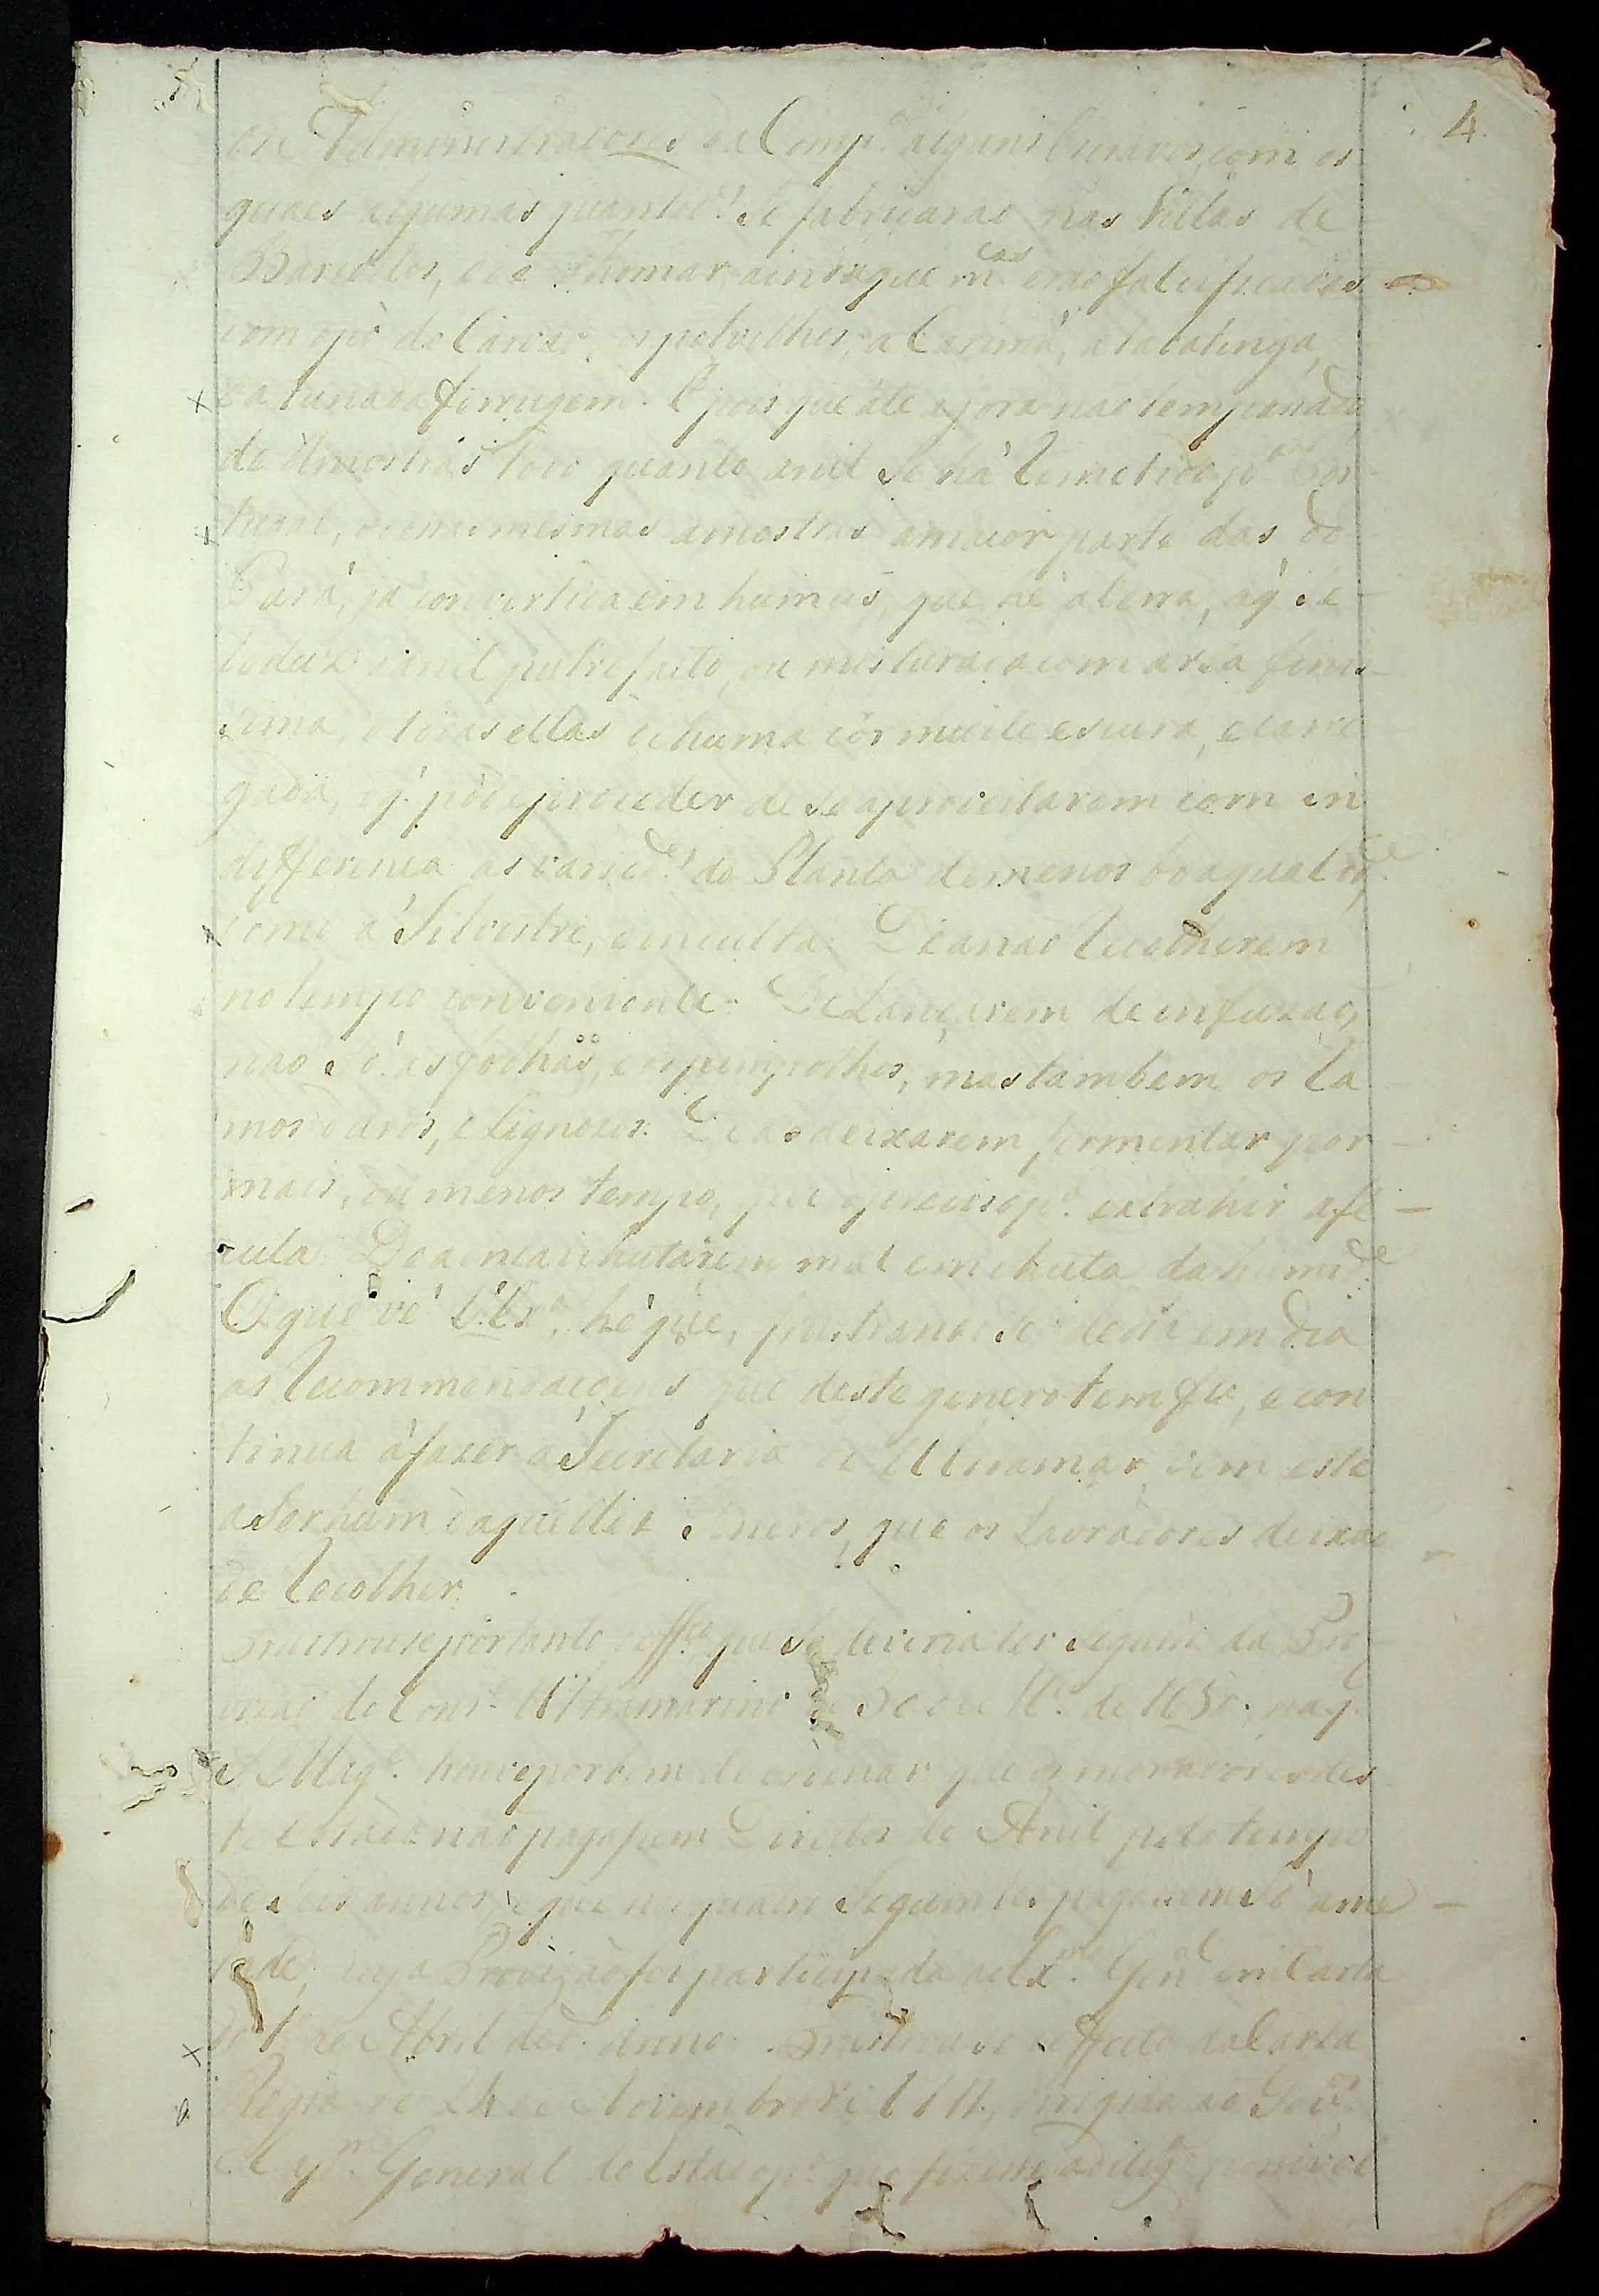 4.
os Administradores da Comp.ª alguns Escravos, com os
quaes algumas quantid.es se fabricarão nas Villas de
Barcellos, e de Thomar, ainda que m.tas erão falsificadas
com o pó de Carvão, os polvilhos, a Carimá, a tabatinga,
e a limada ferrugem. E pois que até agora não tem passado
de Amostras todo quanto anil se há remetido p.ª Por-
tugal, e dessas mesmas amostras a maior parte das do
Pará, já convertida em humus, que hé a terra, a q' se
reduz o anil putrefacto, ou misturada com arêa finis-
sima, e todas ellas de huma côr muito escura, e carre
gada, o q' póde proceder de se aproveitarem com in
differença as varied.es da Planta de menos boa qualid.e,
como a Silvestre, e inculta: De a não recolherem
no tempo conveniente: De Lançarem de infuzão,
não só as folhas, e os pimpolhos, mas tambem os ra
mos duros, e lignozos: De as deixarem fermentar por
mais, ou menos tempo, que o preciso p.ª extrahir a fé
cula: De a encaichutarem mal enxuta da humid.e
O que vê V. Ex.ª, hé que, frustrando-se de dia em dia
as recommendaçoens que deste genero tem f.to, e con
tinua a fazer a Secretaria de Ultramar, vem este
a ser hum daquelles Generos, que os Lavradores deixão
de recolher.
Frustrouse portanto o eff.to que se deveria ter seguido da Pro-
vizão do Cons.º Ultramarino de 30 de de 1680, na q'
S. Mag.e houve por bem de ordenar que os moradores des
te Estado não pagassem Direitos do Anil pelo tempo
de seis annos, e que nos quatro seguintes pagassem só ame
tade; cuja Provizão foi participada ao Ex.mo Gen.al em Carta
do 1.º de Abril do d.º anno. Frustrou-se o effeito da Carta
Regia de 24 de Novembro de dirigida ao Gov.or
e Cap.m General do Estado p.ª que fizesse a dilig.ª possivel